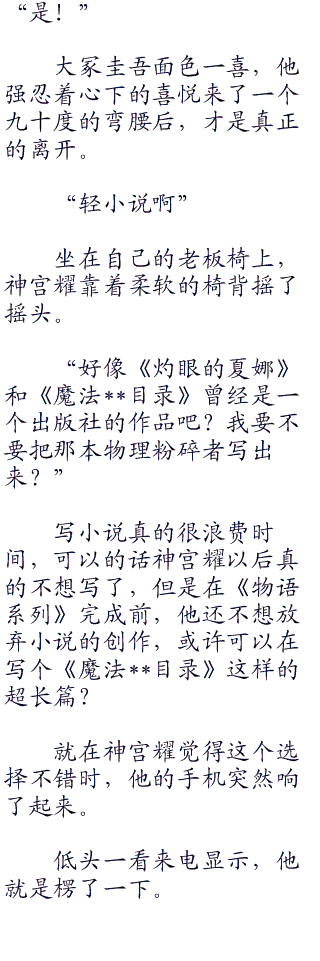 “是！”
大冢圭吾面色一喜，他
强忍着心下的喜悦来了一个
九十度的弯腰后，才是真正
的离开。
“轻小说啊”
坐在自己的老板椅上，
神宫耀靠着柔软的椅背摇了
摇头。
“好像《灼眼的夏娜》
和《魔法**目录》曾经是一
个出版社的作品吧？我要不
要把那本物理粉碎者写出
来？”
写小说真的很浪费时
间，可以的话神宫耀以后真
的不想写了，但是在《物语
系列》完成前，他还不想放
弃小说的创作，或许可以在
写个《魔法**目录》这样的
超长篇？
就在神宫耀觉得这个选
择不错时，他的手机突然响
了起来。
低头一看来电显示，他
就是楞了一下。